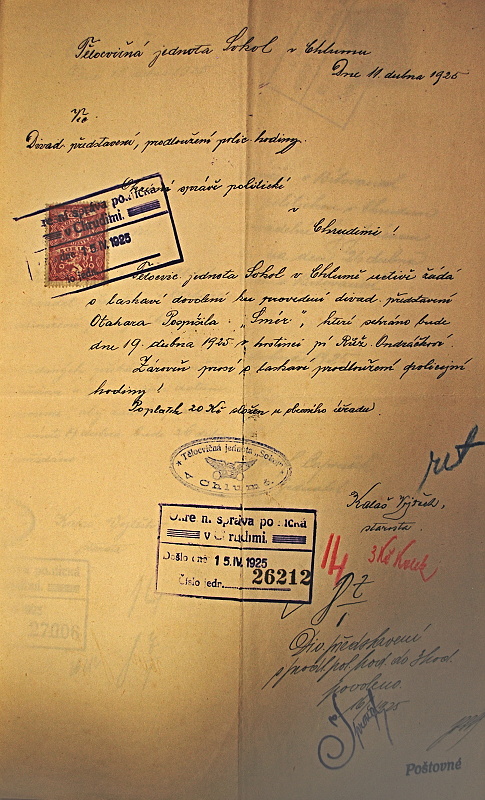 Tělocvičná jednota Sokol v Chlumu
Dne 11. dubna 1925
Věc
Divad. představení, prodloužení polic. hodiny.
Okresní správě politické
v
Chrudimi!
re ní správa politická
v Chrudimi.
dne 15.IV.1925
Tělocvič. jednota Sokol v Chlumě uctivě žádá
o laskavé dovolení ku provedení divad. představení
Otahara Pospíšila: "Směr", které sehráno bude
dne 19. dubna 1925 v hostinci pí Růž. Ondráčkové.
Zároveň prosí o laskavé prodloužení policejní
hodiny!
Poplatek 20 Kč složen u obecního úřadu.
Tělocvičná jednota „Sokol"
v Chlumě.
Kalaš Vojtěch,
starosta.
Okresní správa politická
v Chrudimi.
Došlo dne 15.IV.1925
Číslo jedn. 26212
14 3 Kč
Div. představení
s prodl. pol. hod. do 3 hod.
povoleno.
27006
Poštovné